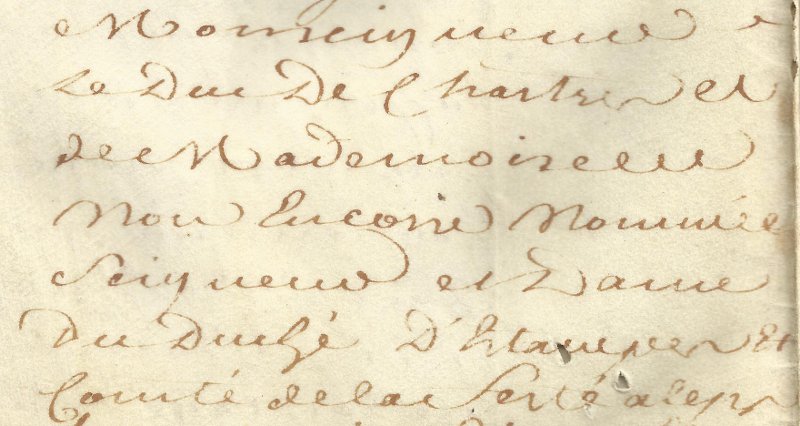 Monseigneur
Le Duc De Chartres et
de Mademoiselle
Non Encorre Nommée
Seigneur et Dame
Du Duché D'Estampes Et
Comté de la Ferté aleps